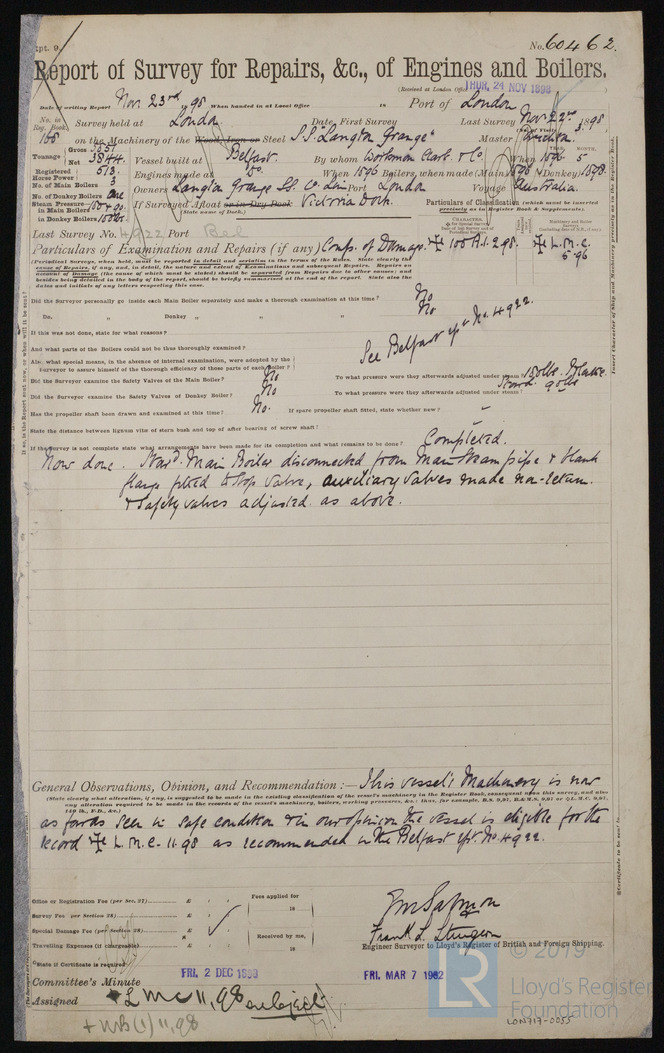 Rpt. 9.
No. 60462.
Report of Survey for Repairs, &c., of Engines and Boilers.
(Received at London Office THUR. 24 NOV 1898
Date of writing Report Nov. 23rd 98 When handed in at Local Office 18 Port of London
No. in Reg. Book. Survey held at London Date, First Survey Last Survey Nov. 22nd 1898
on the Machinery of the Wood, Iron or Steel S.S. "Langton Grange" Master
Tonnage Gross 5851 Net 3844 Vessel built at Belfast By whom Workman Clark & Co. When 1896 5
Registered Horse Power 513 Engines made at Do. When 1896 Boilers, when made (Main) 1896 (Donkey) 1898
No. of Main Boilers 3 Owners Langton Grange SS. Co. Lim Port London Voyage Australia.
No. of Donkey Boilers One
Steam Pressure in Main Boilers If Surveyed Afloat or in Dry Dock Victoria Dock.
(State name of Dock.)
in Donkey Boilers
Particulars of Classification (which must be inserted precisely as in Register Book & Supplements).
Last Survey No. 4922 Port Bel
Particulars of Examination and Repairs (if any) Comp. of Damage. ✠ 100 A.1. 2.98. ✠ L.M.C. 5.96
(Periodical Surveys, when held, must be reported in detail and seriatim in the terms of the Rules. State clearly the
cause of Repairs, if any, and, in detail, the nature and extent of Examinations and subsequent Repairs. Repairs on
account of Damage (the cause of which must be stated) should be separated from Repairs due to other causes; and
besides being detailed in the body of the report, should be briefly summarised at the end of the report. State also the
dates and initials of any letters respecting this case.
Did the Surveyor personally go inside each Main Boiler separately and make a thorough examination at this time? No
Do. „ Donkey „ „ „ No
If this was not done, state for what reasons? See Belfast rpt No. 4922.
And what parts of the Boilers could not be thus thoroughly examined?
Also, what special means, in the absence of internal examination, were adopted by the
Surveyor to assure himself of the thorough efficiency of those parts of each Boiler?
Did the Surveyor examine the Safety Valves of the Main Boiler? No To what pressure were they afterwards adjusted under steam? 150lbs.
Did the Surveyor examine the Safety Valves of Donkey Boiler? No To what pressure were they afterwards adjusted under steam? 90lbs
Has the propeller shaft been drawn and examined at this time? No. If spare propeller shaft fitted, state whether new? –
State the distance between lignum vitæ of stern bush and top of after bearing of screw shaft? –
If the Survey is not complete state what arrangements have been made for its completion and what remains to be done? Completed.
Now done. Starbd. Main Boiler disconnected from main steam pipe & blank
flange fitted to stop valve, auxiliary valves made non-return.
& Safety valves adjusted as above.
General Observations, Opinion, and Recommendation:— This vessel's Machinery is now
(State clearly what alteration, if any, is suggested to be made in the existing classification of the vessel's machinery in the Register Book, consequent upon this survey, and also
any alteration required to be made in the records of the vessel's machinery, boilers, working pressures, &c.;
as far as seen in safe condition & in our opinion the vessel is eligible for the
record ✠ L.M.C. 11.98 as recommended in the Belfast rpt. No. 4922.
Office or Registration Fee (per Sec. 27) £ : : Fees applied for
Survey Fee (per Section 28) £ : : 18
Special Damage Fee (per Section 28) £ : : Received by me,
Travelling Expenses (if chargeable) £ : : 18
State if Certificate is required
Frank L. Sturgeon
Engineer Surveyor to Lloyd's Register of British and Foreign Shipping.
Committee's Minute FRI. 2 DEC 1898 FRI. MAR 7 1902
Assigned + L M C 11,98 subject
+ NB (1) 11,98
© 2019
LR
Lloyd's Register
Foundation
LON717-0055